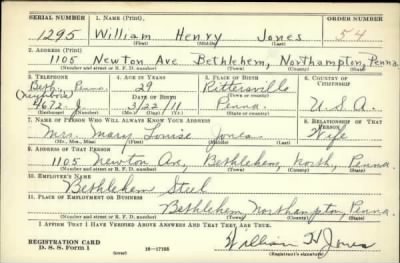 SERIAL NUMBER 1. NAME (Print) ORDER NUMBER
1295 William Henry Jones 54
(First) (Middle) (Last)
2. ADDRESS (Print)
1105 Newton Ave Bethlehem, Northampton, Penna.
(Number and street or R. F. D. number) (Town) (County) (State)
3. TELEPHONE 4. AGE IN YEARS 5. PLACE OF BIRTH 6. COUNTRY OF CITIZENSHIP
Beth. Penna. 29 Rittersville
(neighbors) DATE OF BIRTH
4672 J 3/22/11 Penna. U.S.A.
7. NAME OF PERSON WHO WILL ALWAYS KNOW YOUR ADDRESS 8. RELATIONSHIP OF THAT PERSON
Mrs. Mary Louise Jones Wife
(Mr., Mrs., Miss) (First) (Middle) (Last)
9. ADDRESS OF THAT PERSON
1105 Newton Ave, Bethlehem, North, Penna.
(Number and street or R. F. D. number) (Town) (County) (State)
10. EMPLOYER'S NAME
Bethlehem Steel
11. PLACE OF EMPLOYMENT OR BUSINESS
Bethlehem Northampton, Penna.
(Number and street or R. F. D. number) (Town) (County) (State)
I AFFIRM THAT I HAVE VERIFIED ABOVE ANSWERS AND THAT THEY ARE TRUE.
REGISTRATION CARD
D. S. S. Form 1 (over) 16—17105 William H Jones
(Registrant's signature)